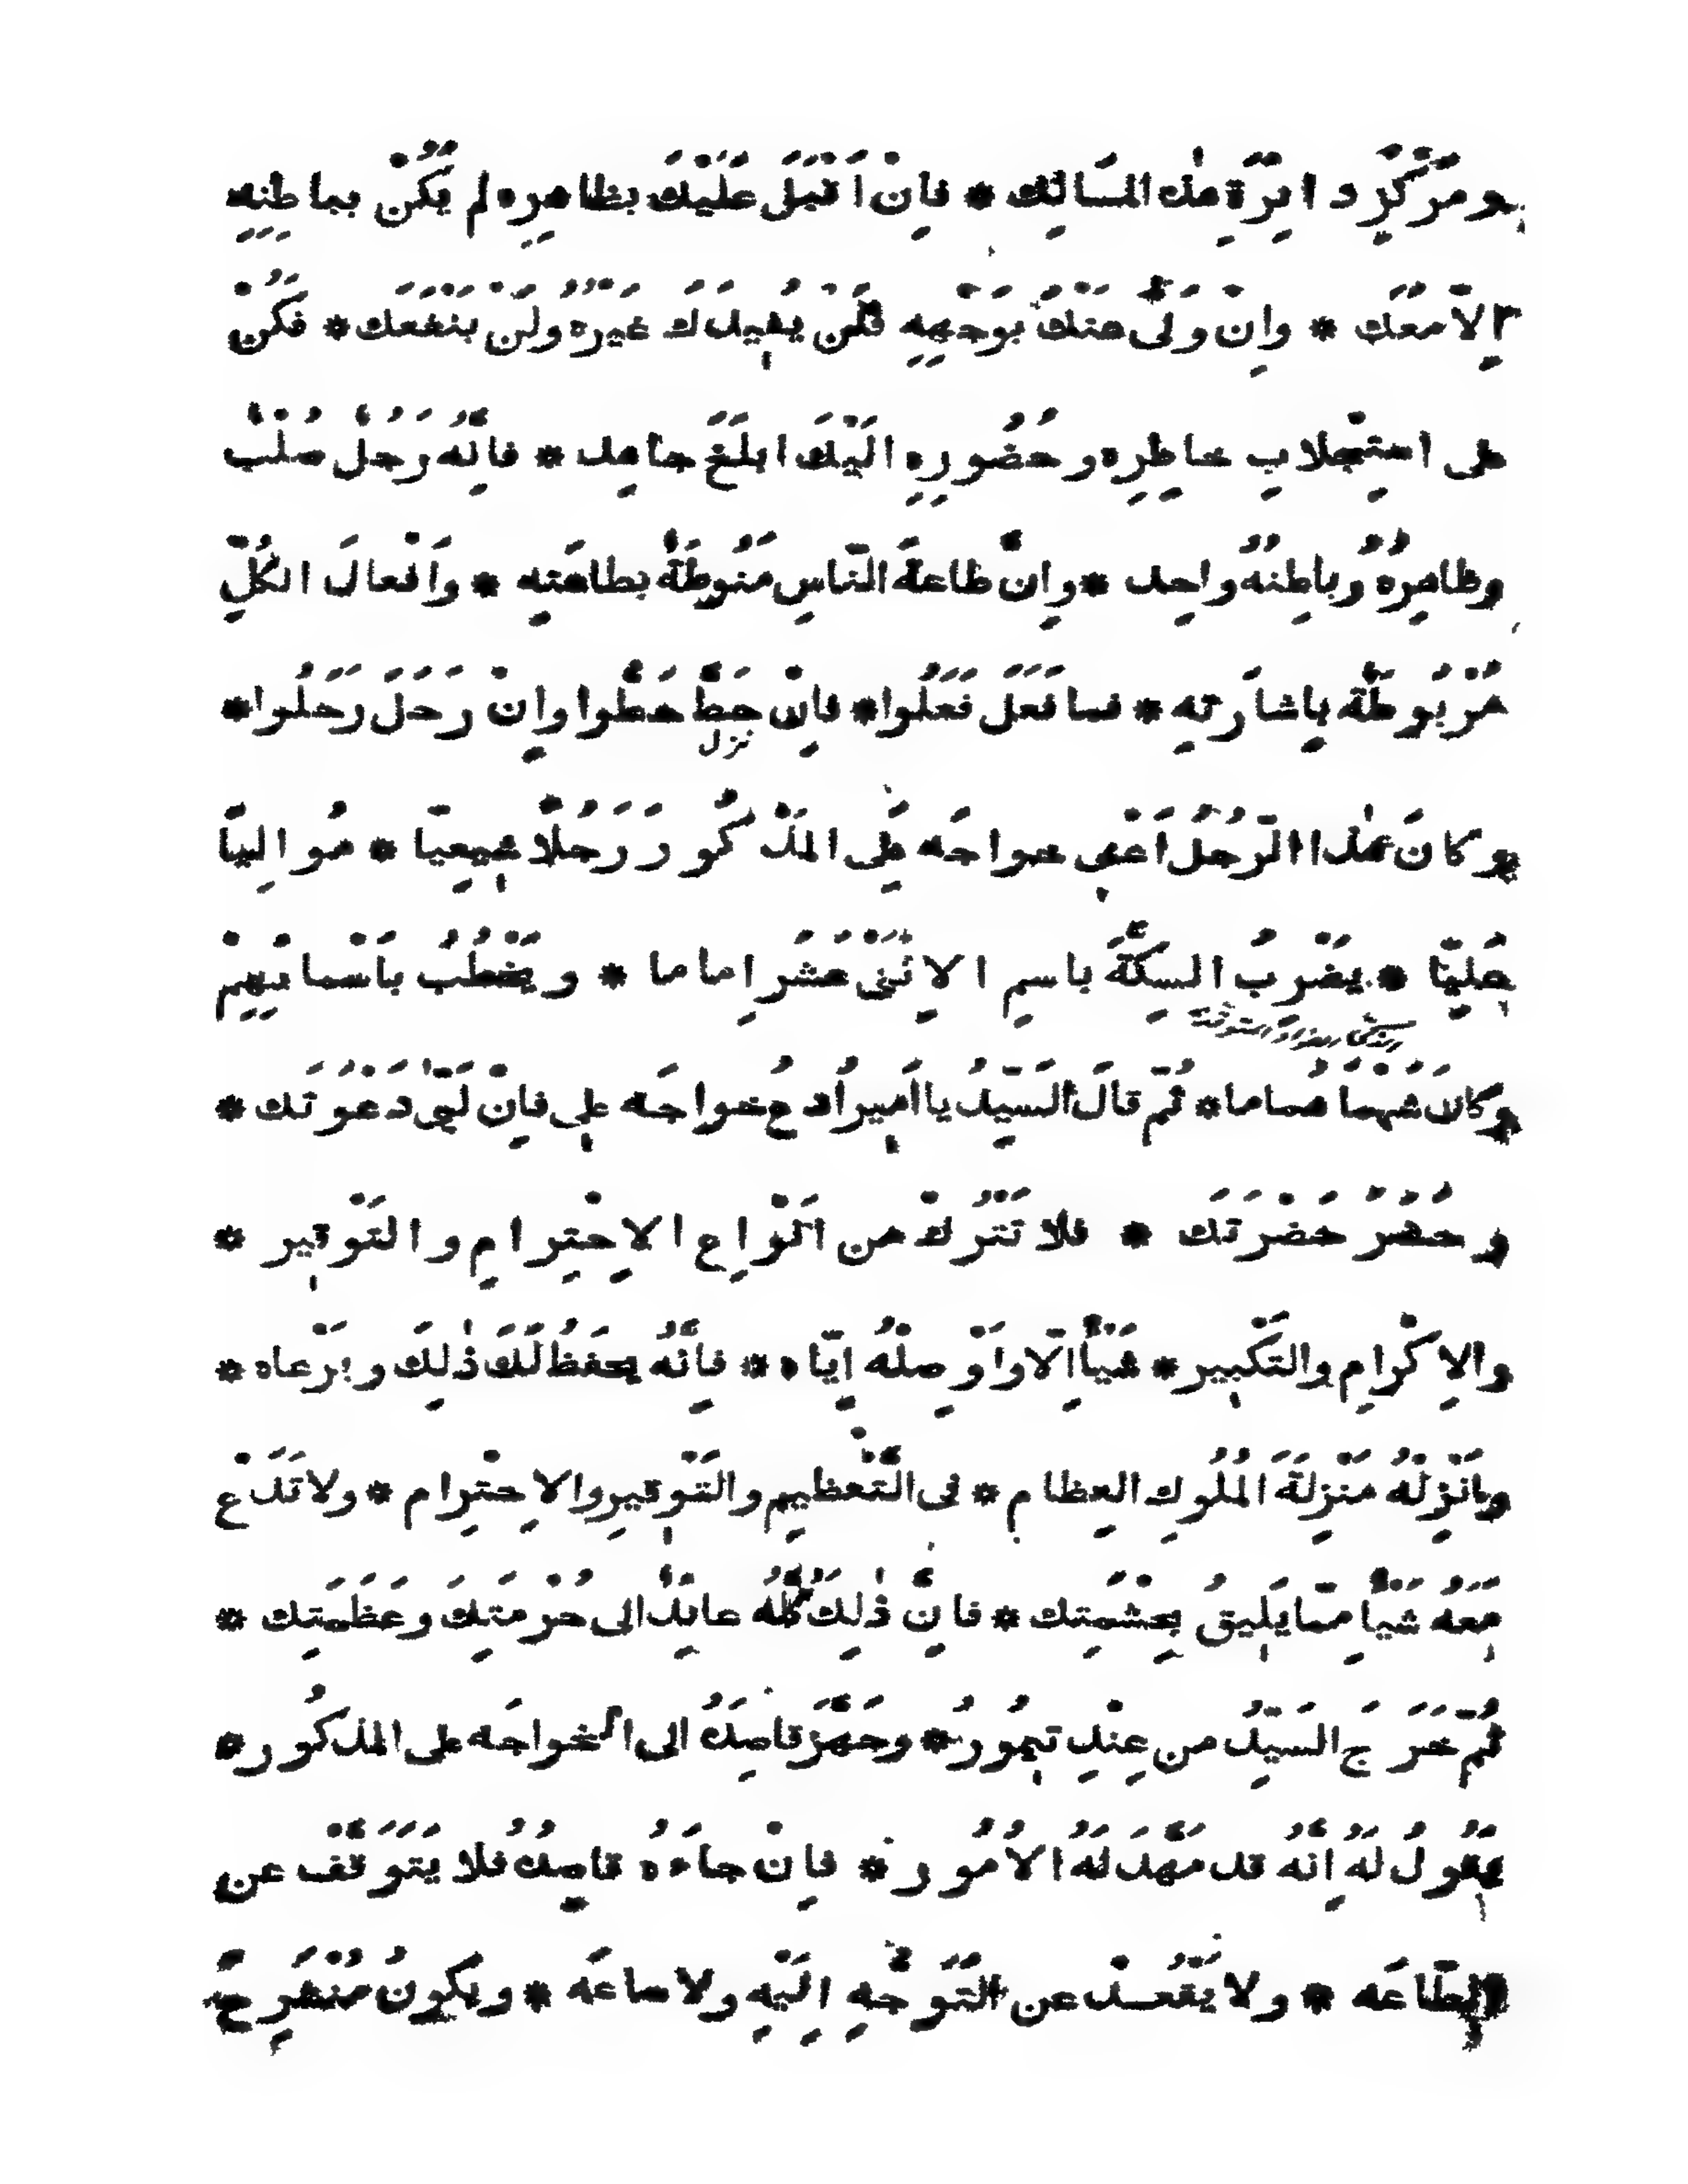 ومَرْكَزِ دائِرَةِ هٰذه المَسَالِك * فاِنْ اَقْبَلَ عَلَيْكَ بظاهِرِه لم يَكُنْ بباطِنِهِ
اِلَّا مَعَك * واِنْ وَلَّى عنْكَ بوَجْهِهِ فَلَنْ يُفيدَك غَيْرُه ولَنْ يَنْفَعَك * فَكُنْ
على اسْتِجْلابِ خاطِرِه وحُضُورِهِ اِلَيْكَ ابلَغَ جاهِد * فاِنَّهُ رَجُلٌ صُلْبٌ
وظاهِرُهُ وباطِنُهُ واحِد * واِنَّ طاعةَ النّاسِ مَنُوطَةٌ بطاعَتِهِ * واَفْعالَ الكُلِّ
مَرْبُوطَةٌ بِاِشارَتِه * فما فَعَلَ فَعَلُوا * فاِنْ حَطَّ حَطُّوا واِنْ رَحَلَ رَحَلُوا *
نزل
وكانَ هٰذا الرَّجُلُ اَعْنى خواجَه عَلِى المَذْكُور رَجُلًا شيعِيّا * مُوالِيًا
عَلِيّا * يَضْرِبُ السِكَّةَ باسمِ الاِثْنَىْ عَشَرَ اِماما * ويَخْطُبُ باَسْمائِهِمْ
وكانَ شَهْمًا هُماما * ثُمّ قالَ السَيِّدُ يا اَميرُ اُدعُ خواجَه على فاِنْ لَبَّى دَعْوَتَك *
وحَضَرَ حَضْرَتَك * فلا تَتْرُكْ من اَنْواعِ الاِحْتِرامِ والتَوْقير *
والاِكْرامِ والتَكْبير * شَيْأً اِلّا واَوْصِلْهُ اِيّاه * فاِنَّهُ يَحفَظُ لَكَ ذٰلِكَ ويرعاه *
واَنْزِلْهُ مَنْزِلَةَ المُلُوكِ العِظام * فى التَّعْظيمِ والتَوْقيرِ والاِحْتِرام * ولا تَدَعْ
مَعَهُ شَيْأً مِمّا يَليقُ بِحِشْمَتِك * فاِنَّ ذٰلِكَ كُلَّهُ عائِدٌ الى حُرْمَتِكَ وعَظَمَتِك *
ثُمّ خَرَجَ السَيِّدُ من عِنْدِ تيمُورَ * وجَهَّزَ قاصِدَهُ الى الخواجَه على المذكُور *
يَقُولُ لَهُ اِنَّهُ قد مَهَّدَ لَهُ الاُمُور * فاِنْ جاءَهُ قاصِدُهُ فلا يَتَوَقَّفْ عن
الطّاعَه * ولا يَقْعُدْ عن التَوَجُّهِ اِلَيْهِ ولا ساعَه * ويكونُ مُنْشَرِحَ